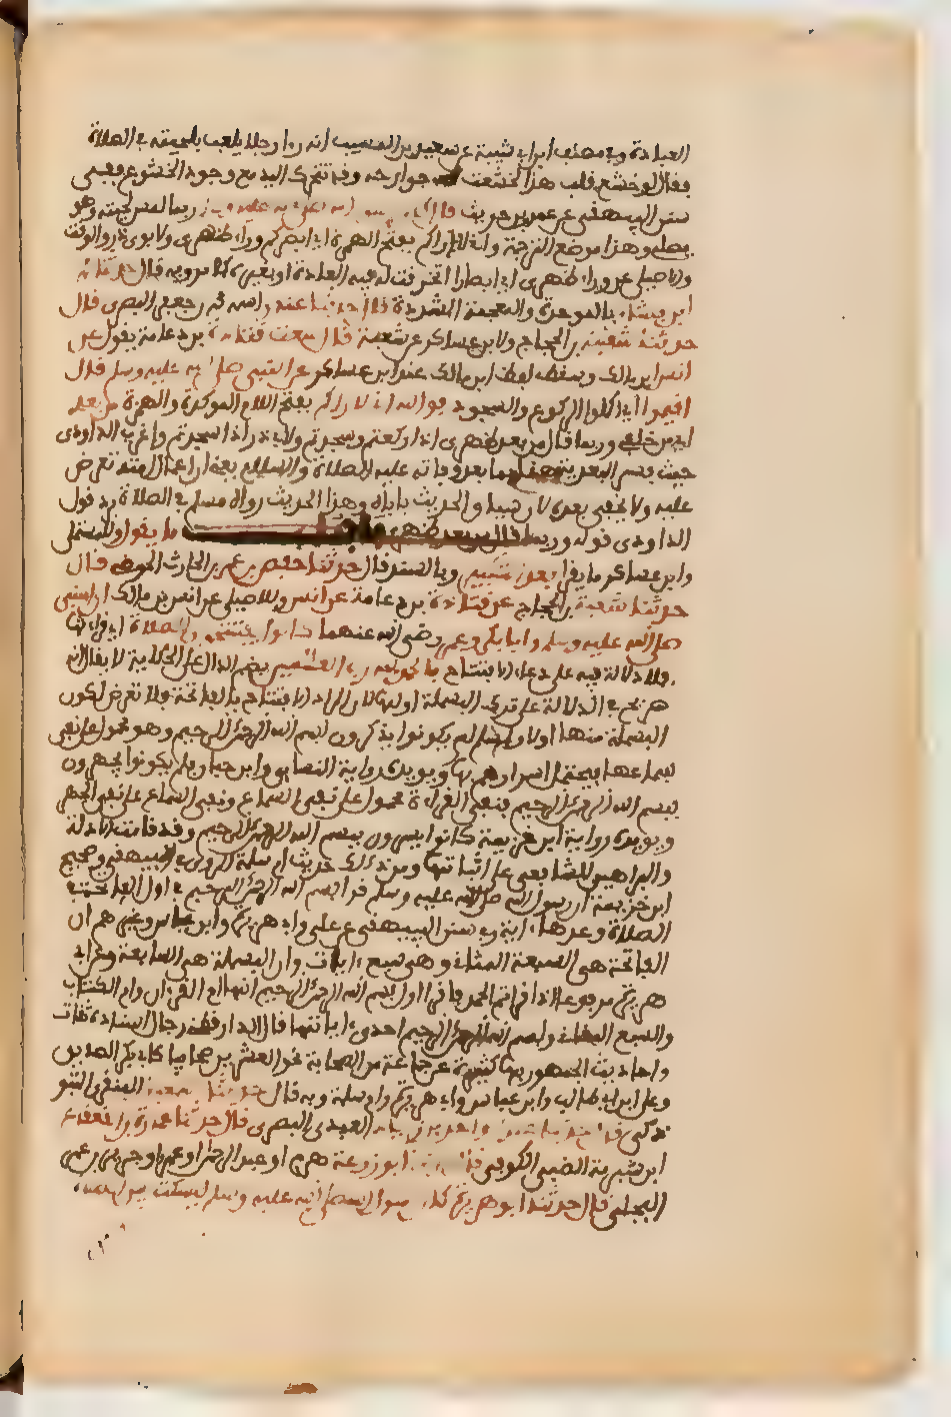 العبادة وفي مصنف ابن ابي شيبة عن سعيد بن المسيب انه راى رجلا يلعب بلحيته في الصلاة
فقال لو خشع قلب هذا لخشعت جوارحه وقد تتحرك اليد مع وجود الخشوع ففي
سنن البيهقي عن عمرو بن حريث قال كان رسول الله صلى الله عليه وسلم ربما لمس لحيته وهو
يصلي وهذا موضع الترجمة واني لاراكم بفتح الهمزة اي ابصركم وراء ظهري ولابوي ذر والوقت
والاصيلي من وراء ظهري اي ابصارا انخرقت له فيه العادة او بغيره كما مر وبه قال حدثنا محمد
ابن بشار بالموحدة والمعجمة المشددة قال حدثنا غندر اسمه محمد بن جعفر البصري قال
حدثنا شعبة بن الحجاج ولابن عساكر عن شعبة قال سمعت قتادة بن دعامة يقول عن
انس ابن مالك وسقط لفظ ابن مالك عند ابن عساكر عن النبي صلى الله عليه وسلم قال
اقيموا اي اكملوا الركوع والسجود فوالله اني لاراكم بفتح اللام الموكدة والهمزة من بعدي
اي من خلفي وربما قال من بعد ظهري اذا ركعتم وسجدتم ولابي ذر اذا سجدتم واغرب الداودي
حيث فسر البعدية هنا بما بعد وفاته عليه الصلاة والسلام يعني ان اعمال امته تعرض
عليه ولا يخفى بعده لان سياق الحديث ياباه وهذا الحديث رواه مسلم في الصلاة
الداودي قوله وربما قال من بعد ظهري باب ما يقول وللمستملي
وابن عساكر ما يقرا بعد التكبير وبالسند قال حدثنا حفص بن عمر بن الحارث الحوضي قال
حدثنا شعبة بن الحجاج عن قتادة بن دعامة عن انس وللاصيلي عن انس بن مالك ان النبي
صلى الله عليه وسلم وابا بكر وعمر رضي الله عنهما كانوا يفتتحون الصلاة اي قراءتها
فلا دلالة فيه على دعاء الافتتاح بالحمد لله رب العالمين بضم الدال على الحكاية لا يقال انه
صريح في الدلالة على ترك البسملة اولها لان المراد الافتتاح بالفاتحة فلا تعرض لكون
البسملة منها او لا ولمسلم لم يكونوا يذكرون بسم الله الرحمن الرحيم وهو محمول على نفي
سماعها فيحتمل اسرارهم بها ويويده رواية النساءي وابن حبان فلم يكونوا يجهرون
ببسم الله الرحمن الرحيم فنفي القراءة محمول على نفي السماع ونفي السماع على نفي الجهر
ويويده رواية ابن خزيمة كانوا يسرون ببسم الله الرحمن الرحيم وقد قامت الادلة
والبراهين للشافعي على اثباتها ومن ذلك حديث ام سلمة المروي في البيهقي وصحيح
ابن خزيمة ان رسول الله صلى الله عليه وسلم قرا بسم الله الرحمن الرحيم في اول الفاتحة في
الصلاة وعدها اية وفي سنن البيهقي عن علي وابي هريرة وابن عباس وغيرهم ان
الفاتحة هي السبعة المثاني وهي سبع ايات وان البسملة هي السابعة وعن ابي
هريرة مرفوعا اذا قراتم الحمد فاقراوا بسم الله الرحمن الرحيم انها ام القران وام الكتاب
والسبع المثاني وبسم الله الرحمن الرحيم احدى اياتها قال الدارقطني رجال اسناده ثقات
واحاديث الجهر بها كثيرة عن جماعة من الصحابة نحو العشرين صحابيا كابي بكر الصديق
وعلي ابن ابي طالب وابن عباس وابي هريرة وام سلمة وبه قال حدثنا موسى المنقري التبو
ذكي قال حدثنا عبد الواحد بن زياد العبدي البصري قال حدثنا عمارة بن القعقاع
ابن شبرمة الضبي الكوفي قال حدثنا ابو زرعة هرم او عبد الرحمن او عمرو او جرير بن عمرو
البجلي قال حدثنا ابو هريرة كان رسول الله صلى الله عليه وسلم يسكت بين التكبير